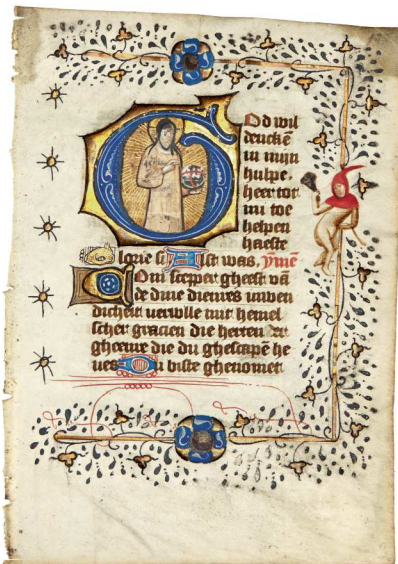 God wil
denckē
in mijn
hulpe.
heer tot
mi toe
helpen
haeste
Glorie si Alst was. ymnē
Com scepper gheest vā
de dine dienres inwen
dichen vervolle mit hemel
scher gracien die herten der
gheenre die du ghescapē he
ves Du biste ghenomet